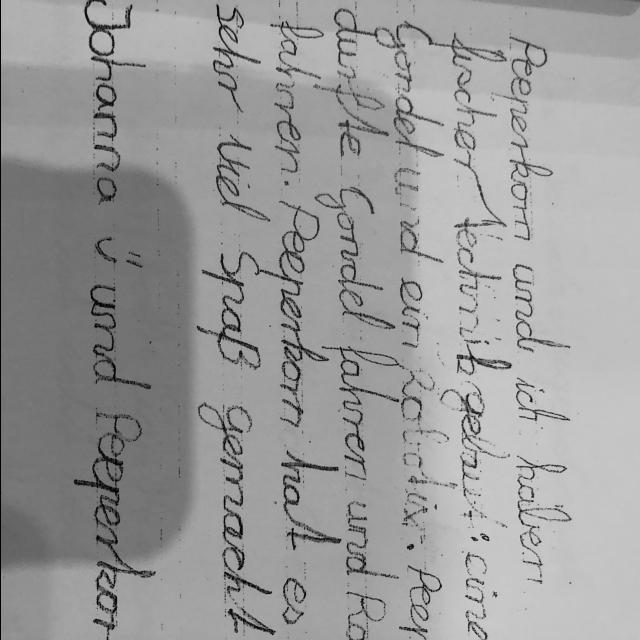 Peeperkorn und ich haben
fischer technik gebaut: eine
Gondel und ein Roboter. Peep
durfte Gondel fahren und Ro
fahren. Peeperkorn hat es
sehr viel Spaß gemacht
Johanna ü und Peeperkor